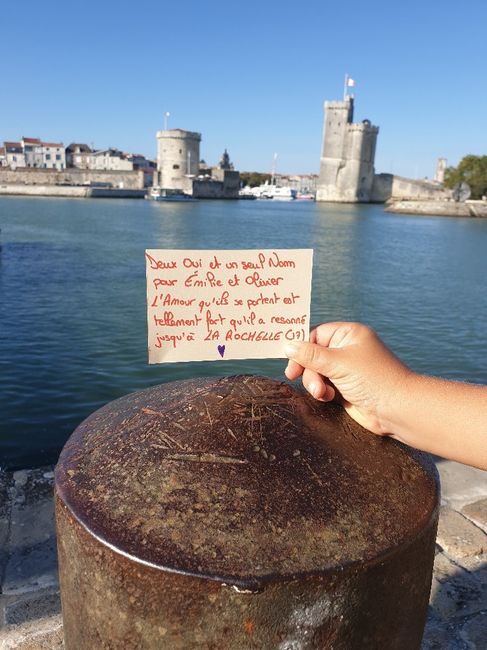 Deux Oui et un seul Nom
pour Émilie et Olivier
L'Amour qu'ils se portent est
tellement fort qu'il a resonné
jusqu'à LA ROCHELLE (17)